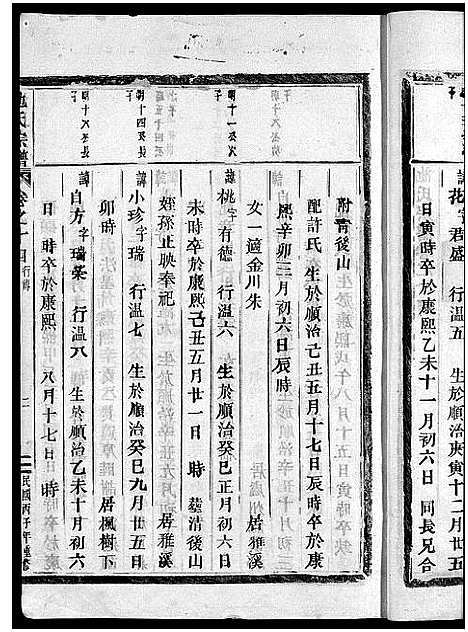 花字君盛 行溫五
寅十二月廿五
日寅時卒於康熙乙未十一月初六日 同長兄合
附青後山
配許氏 生於順治己丑五月十七日辰時卒於康
熙辛卯三月初六日辰時
女一適金川朱 居雅溪
明十一公次子
諱
桃字有德 行溫六 生於順治癸巳正月初六日
未時卒於康熙己丑五月廿一日 時 塟清後山
姪孫正映奉祀 居雅溪
明十四公長子
諱
小珍字瑞 行溫七 生於順治癸巳九月廿五日
卯時 居楓樹下
明十八公長子
諱
自方字瑞 行溫八 生於順治乙未十月初六
日 時卒於康熙 八月十七日 時
氏宗譜 卷之一 行傳 二 民國丙子年